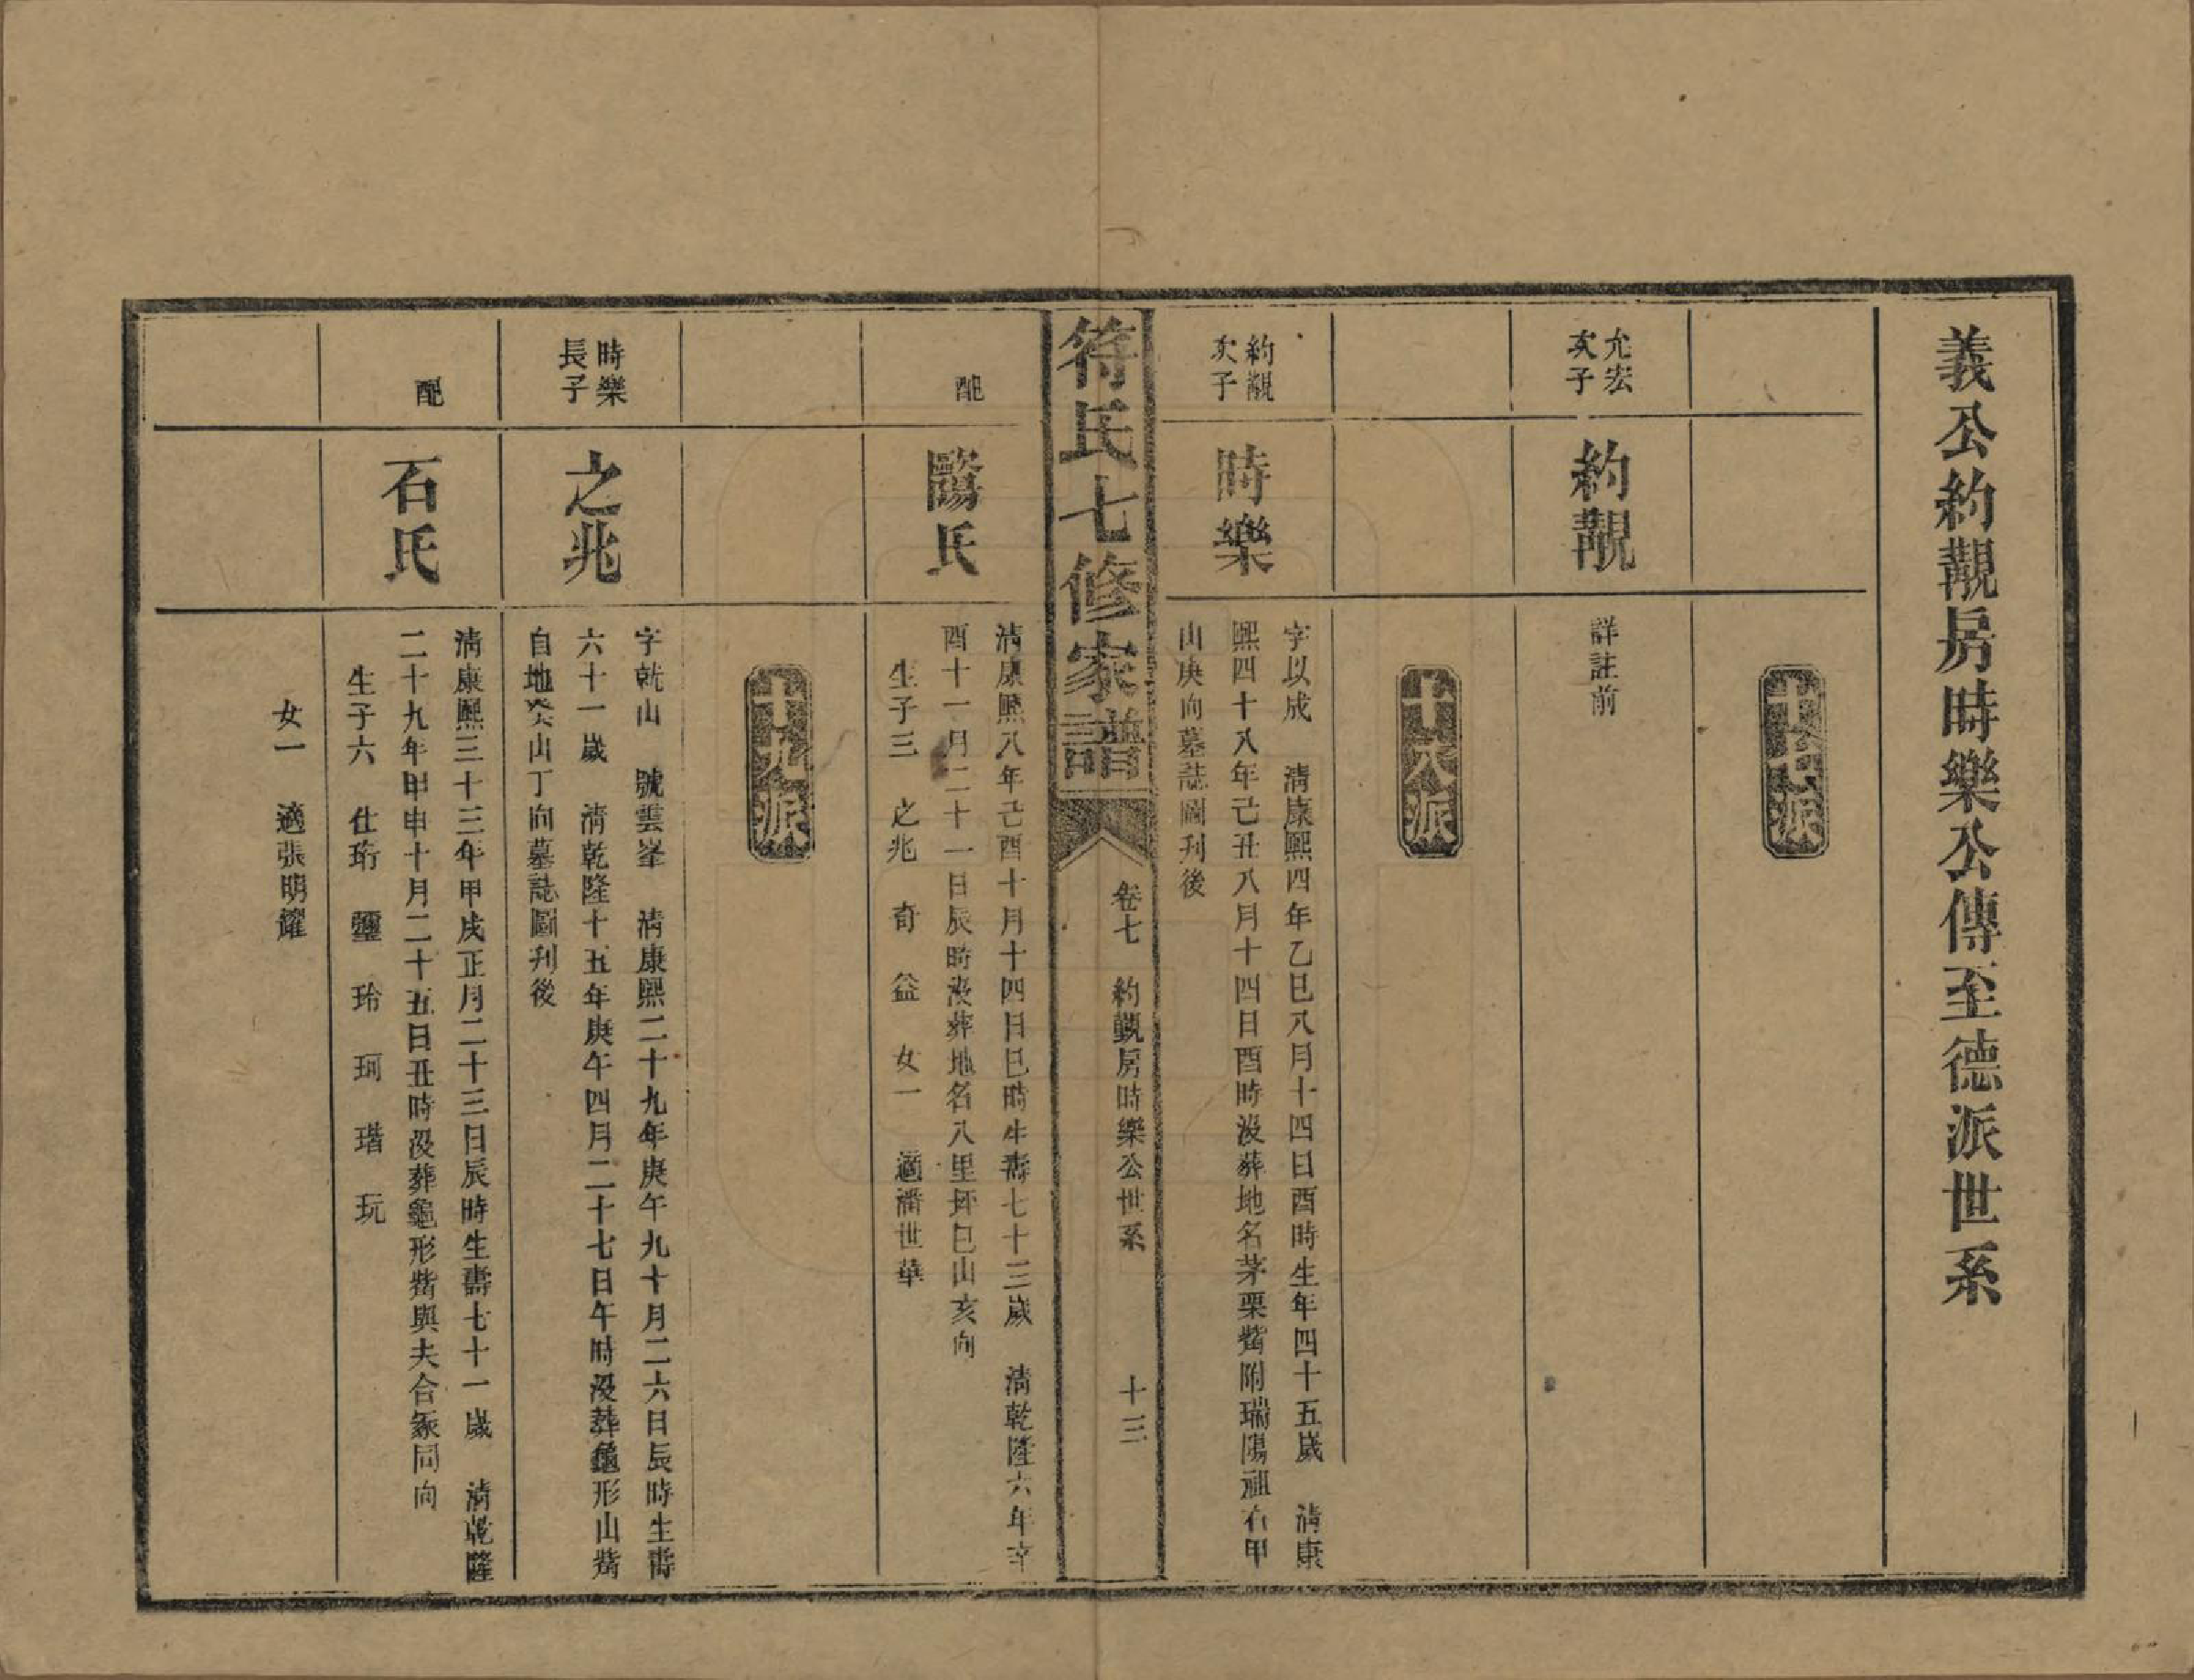 義公約覯房時樂公傳至德派世系
十七派
允宏
次子
約覯
詳註前
十八派
約覯
次子
時樂
字以成 清康熙四年乙巳八月十四日酉時生年四十五歲 清康
熙四十八年己丑八月十四日酉時沒葬地名茅栗觜附瑞陽祖右甲
山庚向墓誌圖刋後
符氏七修家譜
卷七 約覯房時樂公世系
十三
配
陽氏
清康熙八年己酉十月十四日巳時生壽七十三歲 清乾隆六年辛
酉十一月二十一日辰時沒葬地名八里抔巳山亥向
生子三 之兆 奇 益 女一 適潘世華
十九派
時樂
長子
之兆
字兢山 號雲峯 清康熙二十九年庚午九十月二六日辰時生壽
六十一歲 清乾隆十五年庚午四月二十七日午時沒葬龜形山觜
自地癸山丁向墓誌圖刋後
配
石氏
清康熙三十三年甲戌正月二十三日辰時生壽七十一歲 清乾隆
二十九年甲申十月二十五日丑時沒葬龜形觜與夫合冢同向
生子六 仕珩 璽 玲 珂 瑎 玩
女一 適張明耀